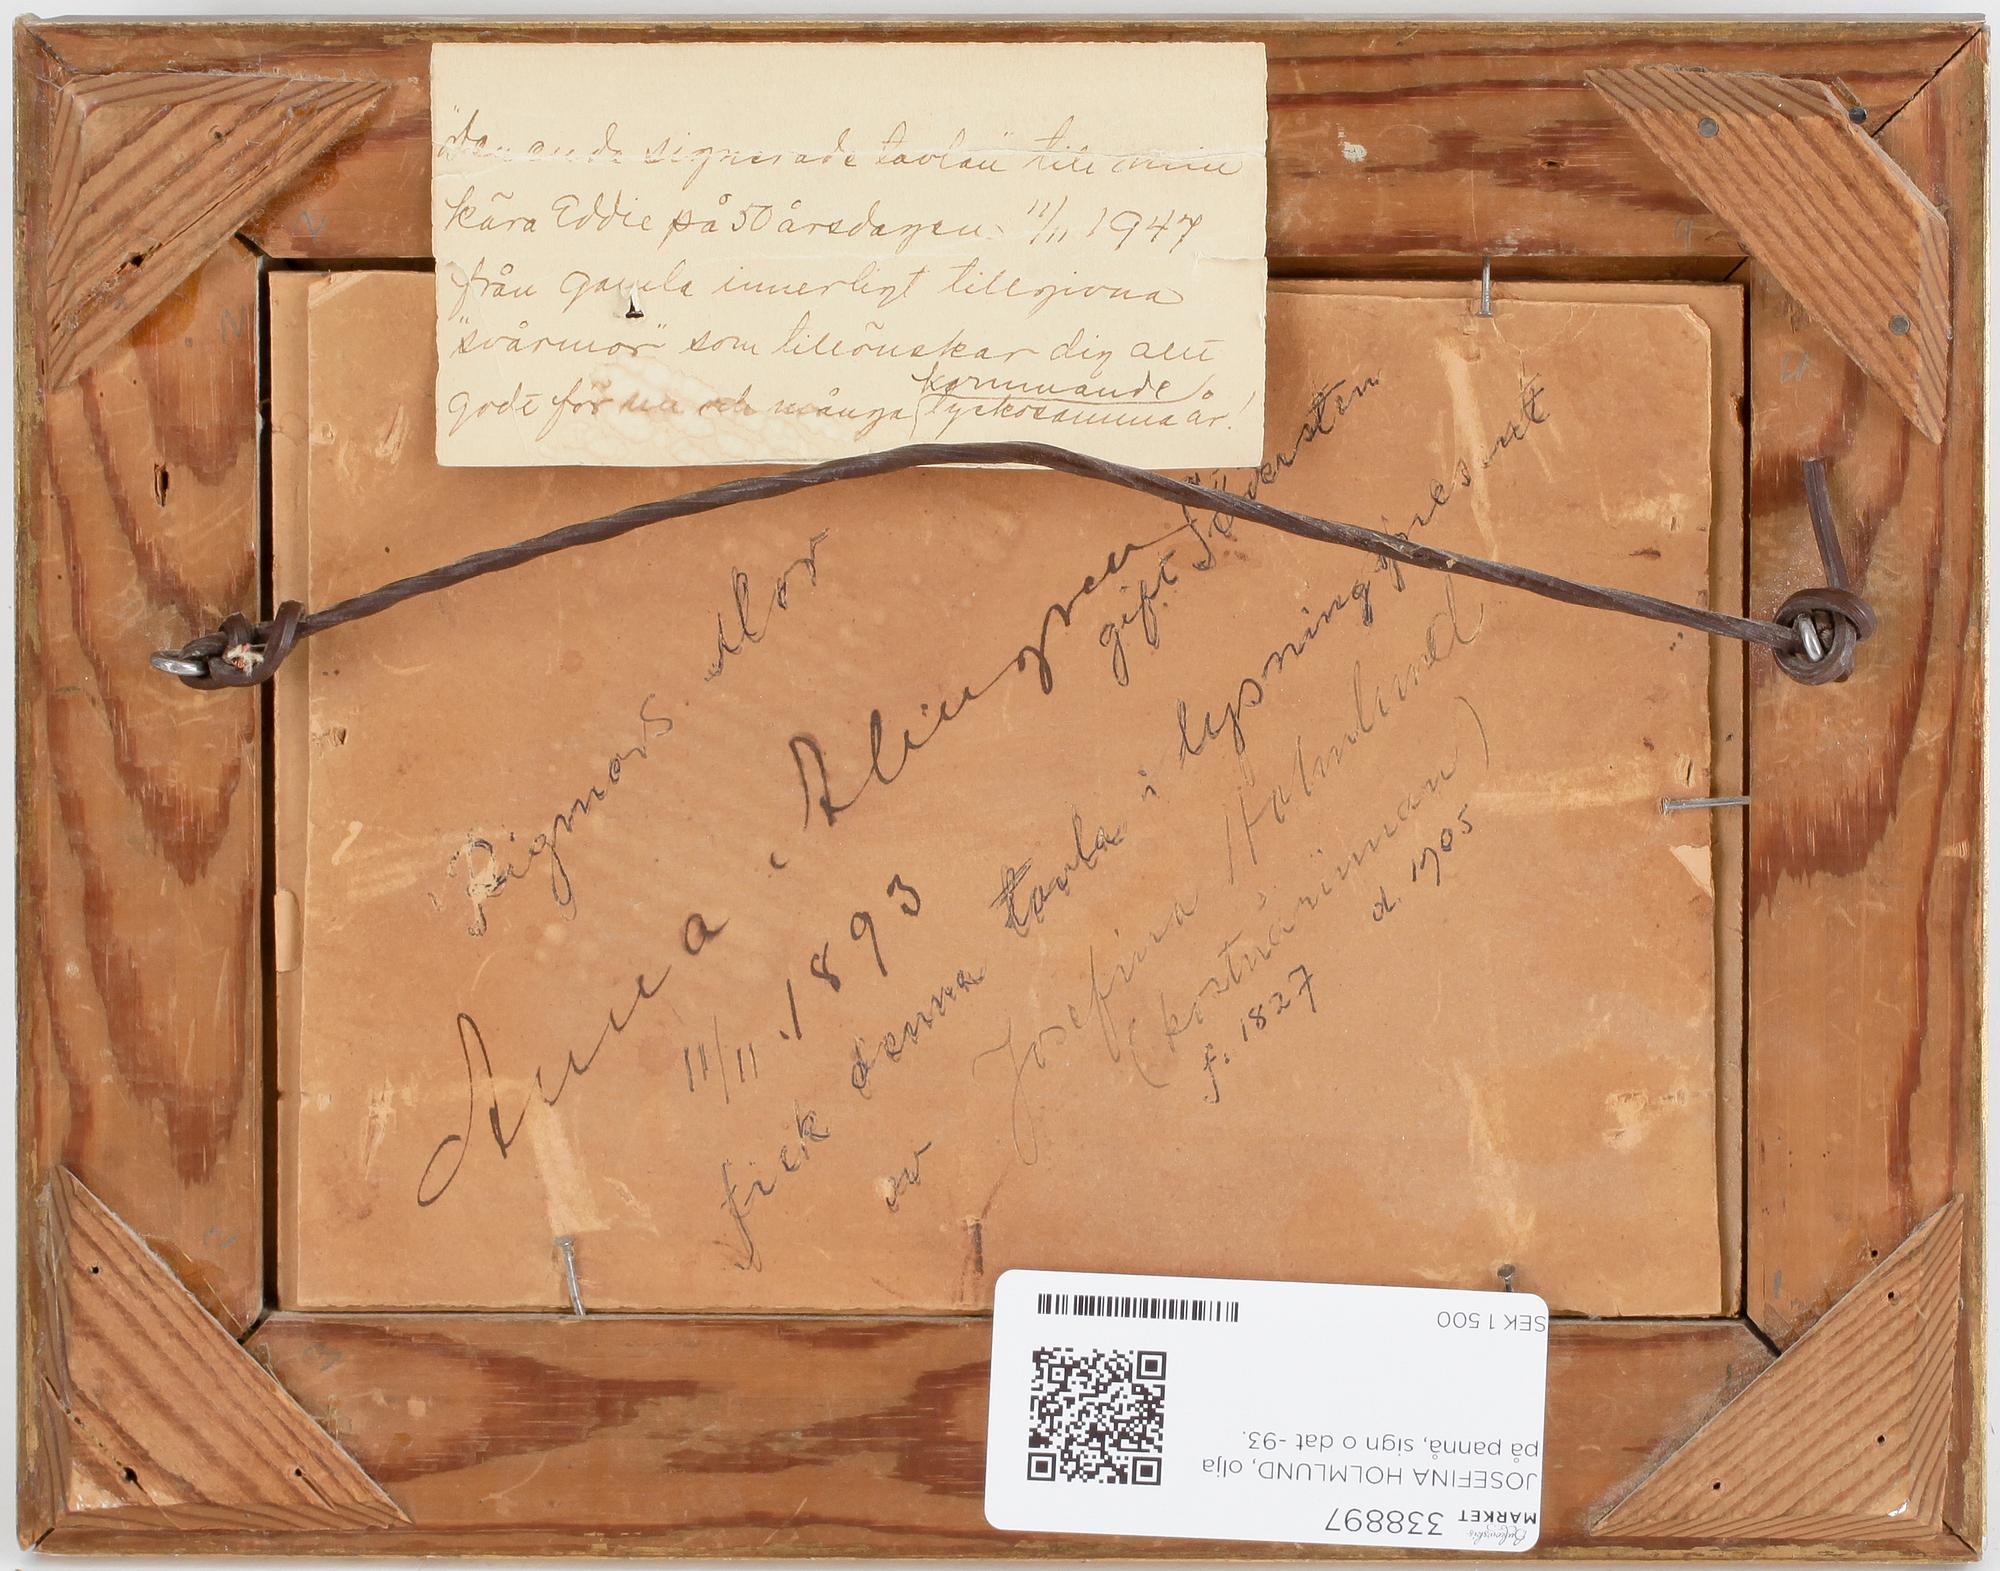 "Den enda signerade tavlan" till min
kära Eddie på 50 årsdagen 11/11 1947
från gamla innerligt tillgivna
"svärmor" som tillönskar dig allt
godt för nu och många kommande
lyckosamma år!
Rigmors Mor
Anna Almgren
gift Söderstén
11/11 1893
fick denna tavla i lysningspresent
av Josefina Holmlund
(konstnärinnan)
f. 1827 d. 1905
Bukowskis
MARKET 338897
JOSEFINA HOLMLUND, olja
på pannå, sign o dat -93.
SEK 1 500